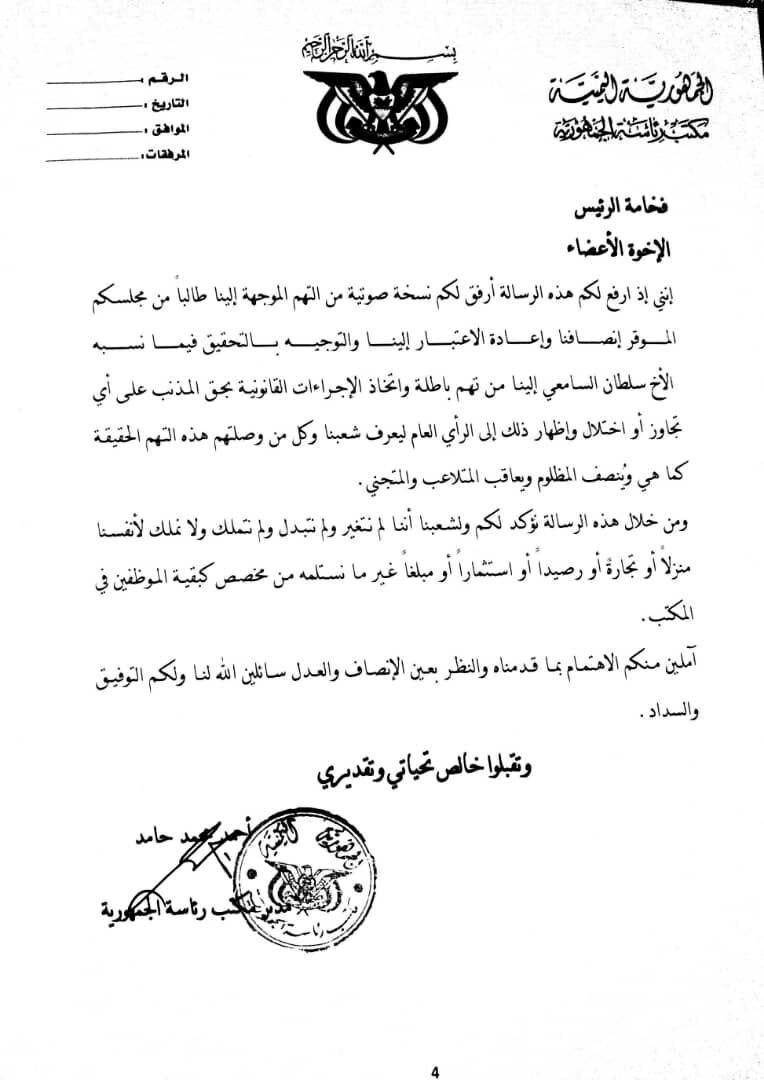 بسم الله الرحمن الرحيم
الجمهورية اليمنية
مكتب رئاسة الجمهورية
الرقم :
التاريخ :
الموافق :
المرفقات :
فخامة الرئيس
الإخوة الأعضاء
إنني إذ ارفع لكم هذه الرسالة أرفق لكم نسخة صوتية من التهم الموجهة إلينا طالباً من مجلسكم
الموقر إنصافنا وإعادة الاعتبار إلينا والتوجيه بالتحقيق فيما نسبه
الأخ سلطان السامعي إلينا من تهم باطلة واتخاذ الإجراءات القانونية بحق المذنب على أي
تجاوز أو اختلال وإظهار ذلك إلى الرأي العام ليعرف شعبنا وكل من وصلتهم هذه التهم الحقيقة
كما هي ويُنصف المظلوم ويعاقب المتلاعب والمتجني .
ومن خلال هذه الرسالة نؤكد لكم ولشعبنا أننا لم نتغير ولم نتبدل ولم نتملك ولا نملك لأنفسنا
منزلاً أو تجارةً أو رصيداً أو استثماراً أو مبلغاً غير ما نستلمه من مخصص كبقية الموظفين في
المكتب .
آملين منكم الاهتمام بما قدمناه والنظر بعين الإنصاف والعدل سائلين الله لنا ولكم التوفيق
والسداد .
وتقبلوا خالص تحياتي وتقديري
أحمد محمد حامد
مدير مكتب رئاسة الجمهورية
الجمهورية اليمنية
مكتب رئاسة الجمهورية
4